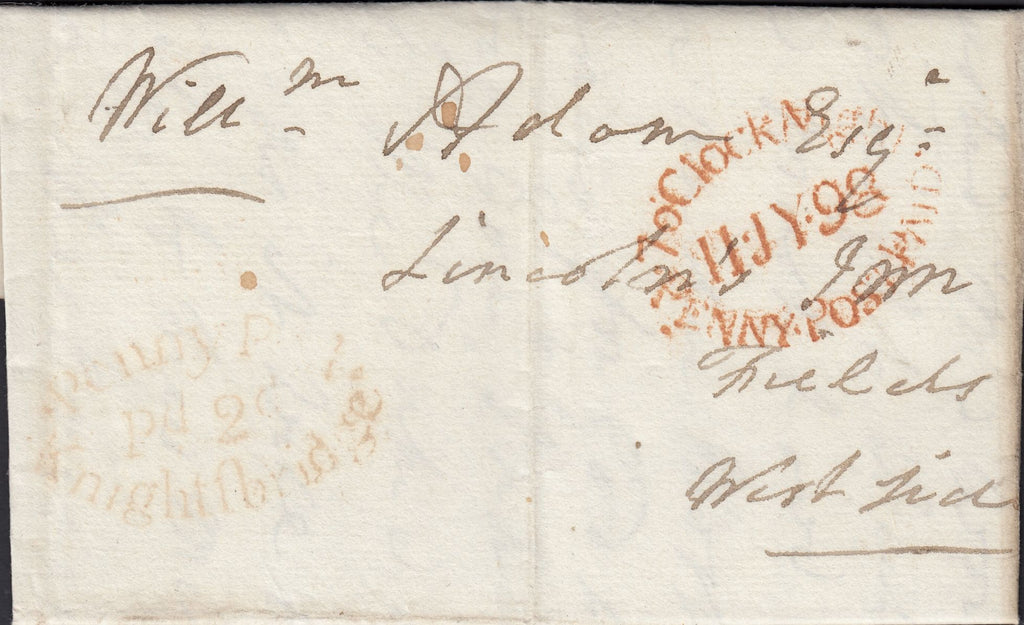 Will^m Adam Esq^r
Lincoln's Inn
Fields
West Sid
oClock
11·JY·98
PENNY·POST PAID
penny p
pd 2d
Knightsbridge